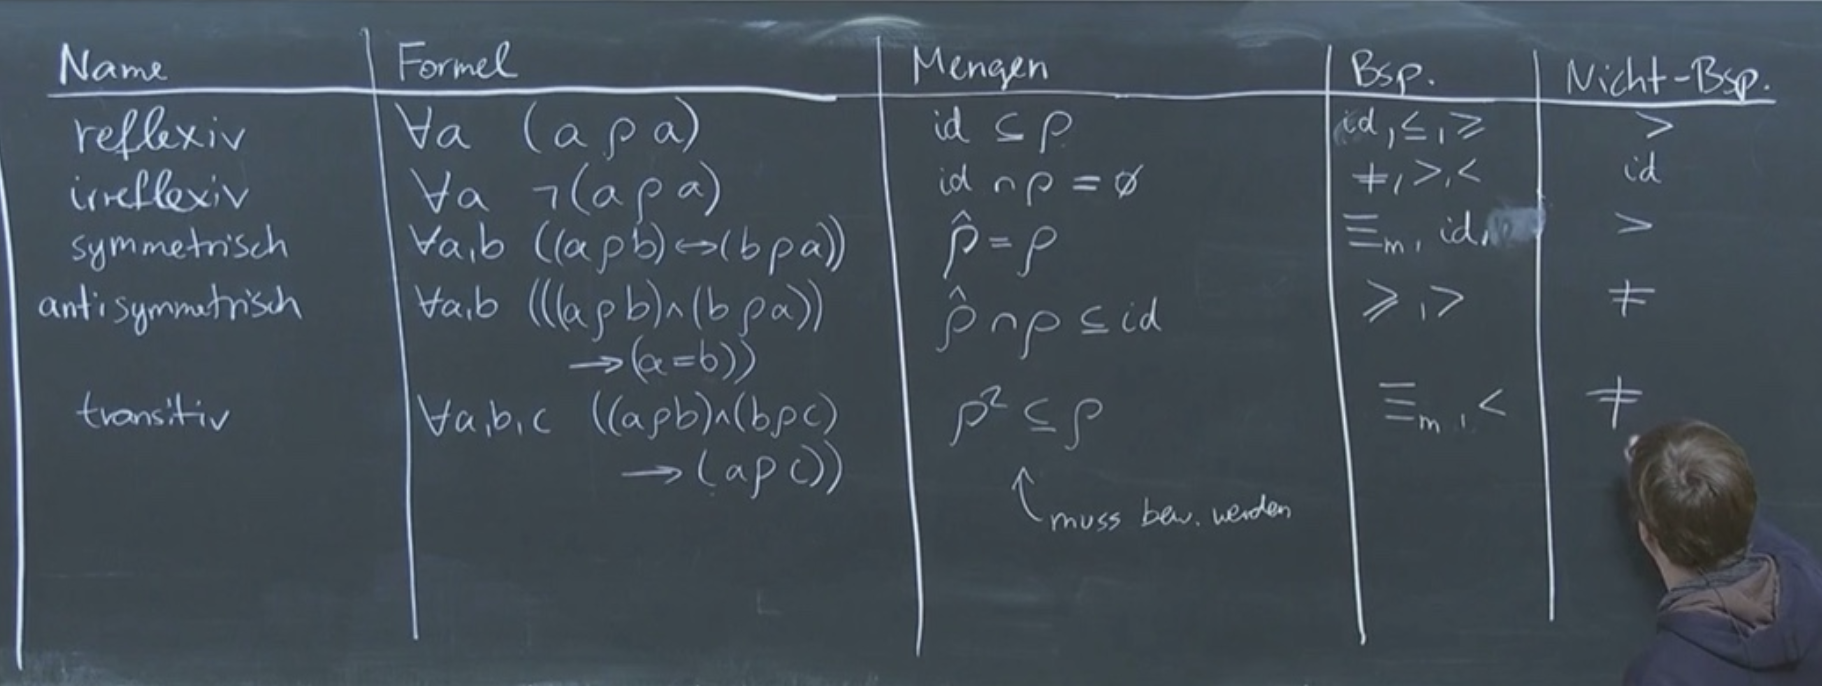 Name Formel Mengen Bsp. Nicht-Bsp.
reflexiv ∀a (a ρ a) id ⊆ ρ id, ≤, ≥ >
irreflexiv ∀a ¬(a ρ a) id ∩ ρ = ∅ ≠, >, < id
symmetrisch ∀a,b ((a ρ b) ↔ (b ρ a)) ρ̂ = ρ ≡m, id, >
antisymmetrisch ∀a,b (((a ρ b) ∧ (b ρ a)) ρ̂ ∩ ρ ⊆ id ≥, > ≠
→ (a = b))
transitiv ∀a,b,c ((a ρ b) ∧ (b ρ c) ρ² ⊆ ρ ≡m, < ≠
→ (a ρ c))
muss bew. werden